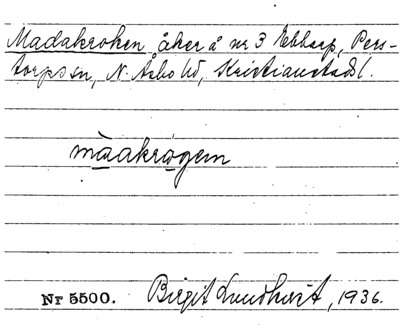 Madakroken åker å nr 3 Ebbarp, Pers-
torps sn, N. Åsbo hd, Kristianstads l.
màakrǫgem
Nr 5500. Birgit Lundkvist, 1936.